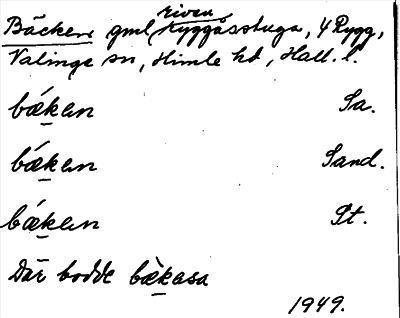 Bäcken gml riven ryggåsstuga, 4 Rygg,
Valinge sn, Himle hd, Hall. l.
bǽkɛn Sa.
bǽkɛn Sand.
bǽkɛn St.
Där bodde bæ̀kasa
1949.